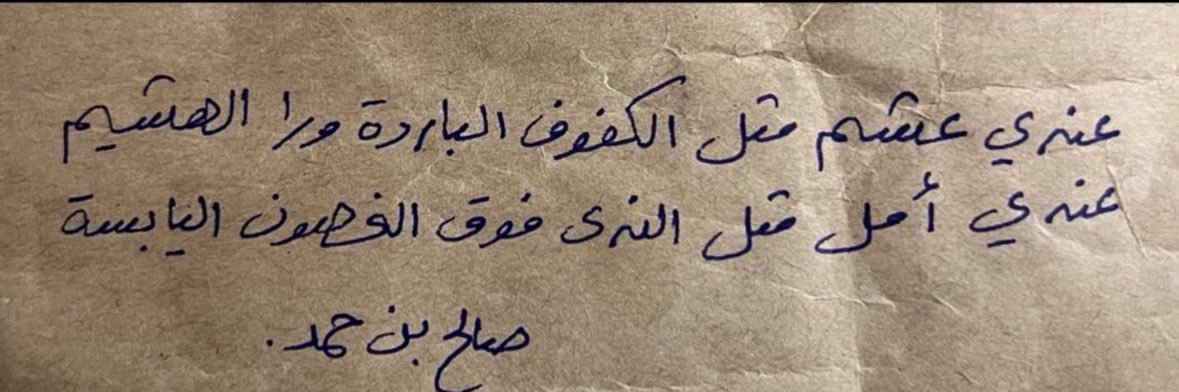 عندي عشم مثل الكفوف الباردة ورا الهشيم
عندي أمل مثل الندى فوق الغصون اليابسة
صالح بن حمد.